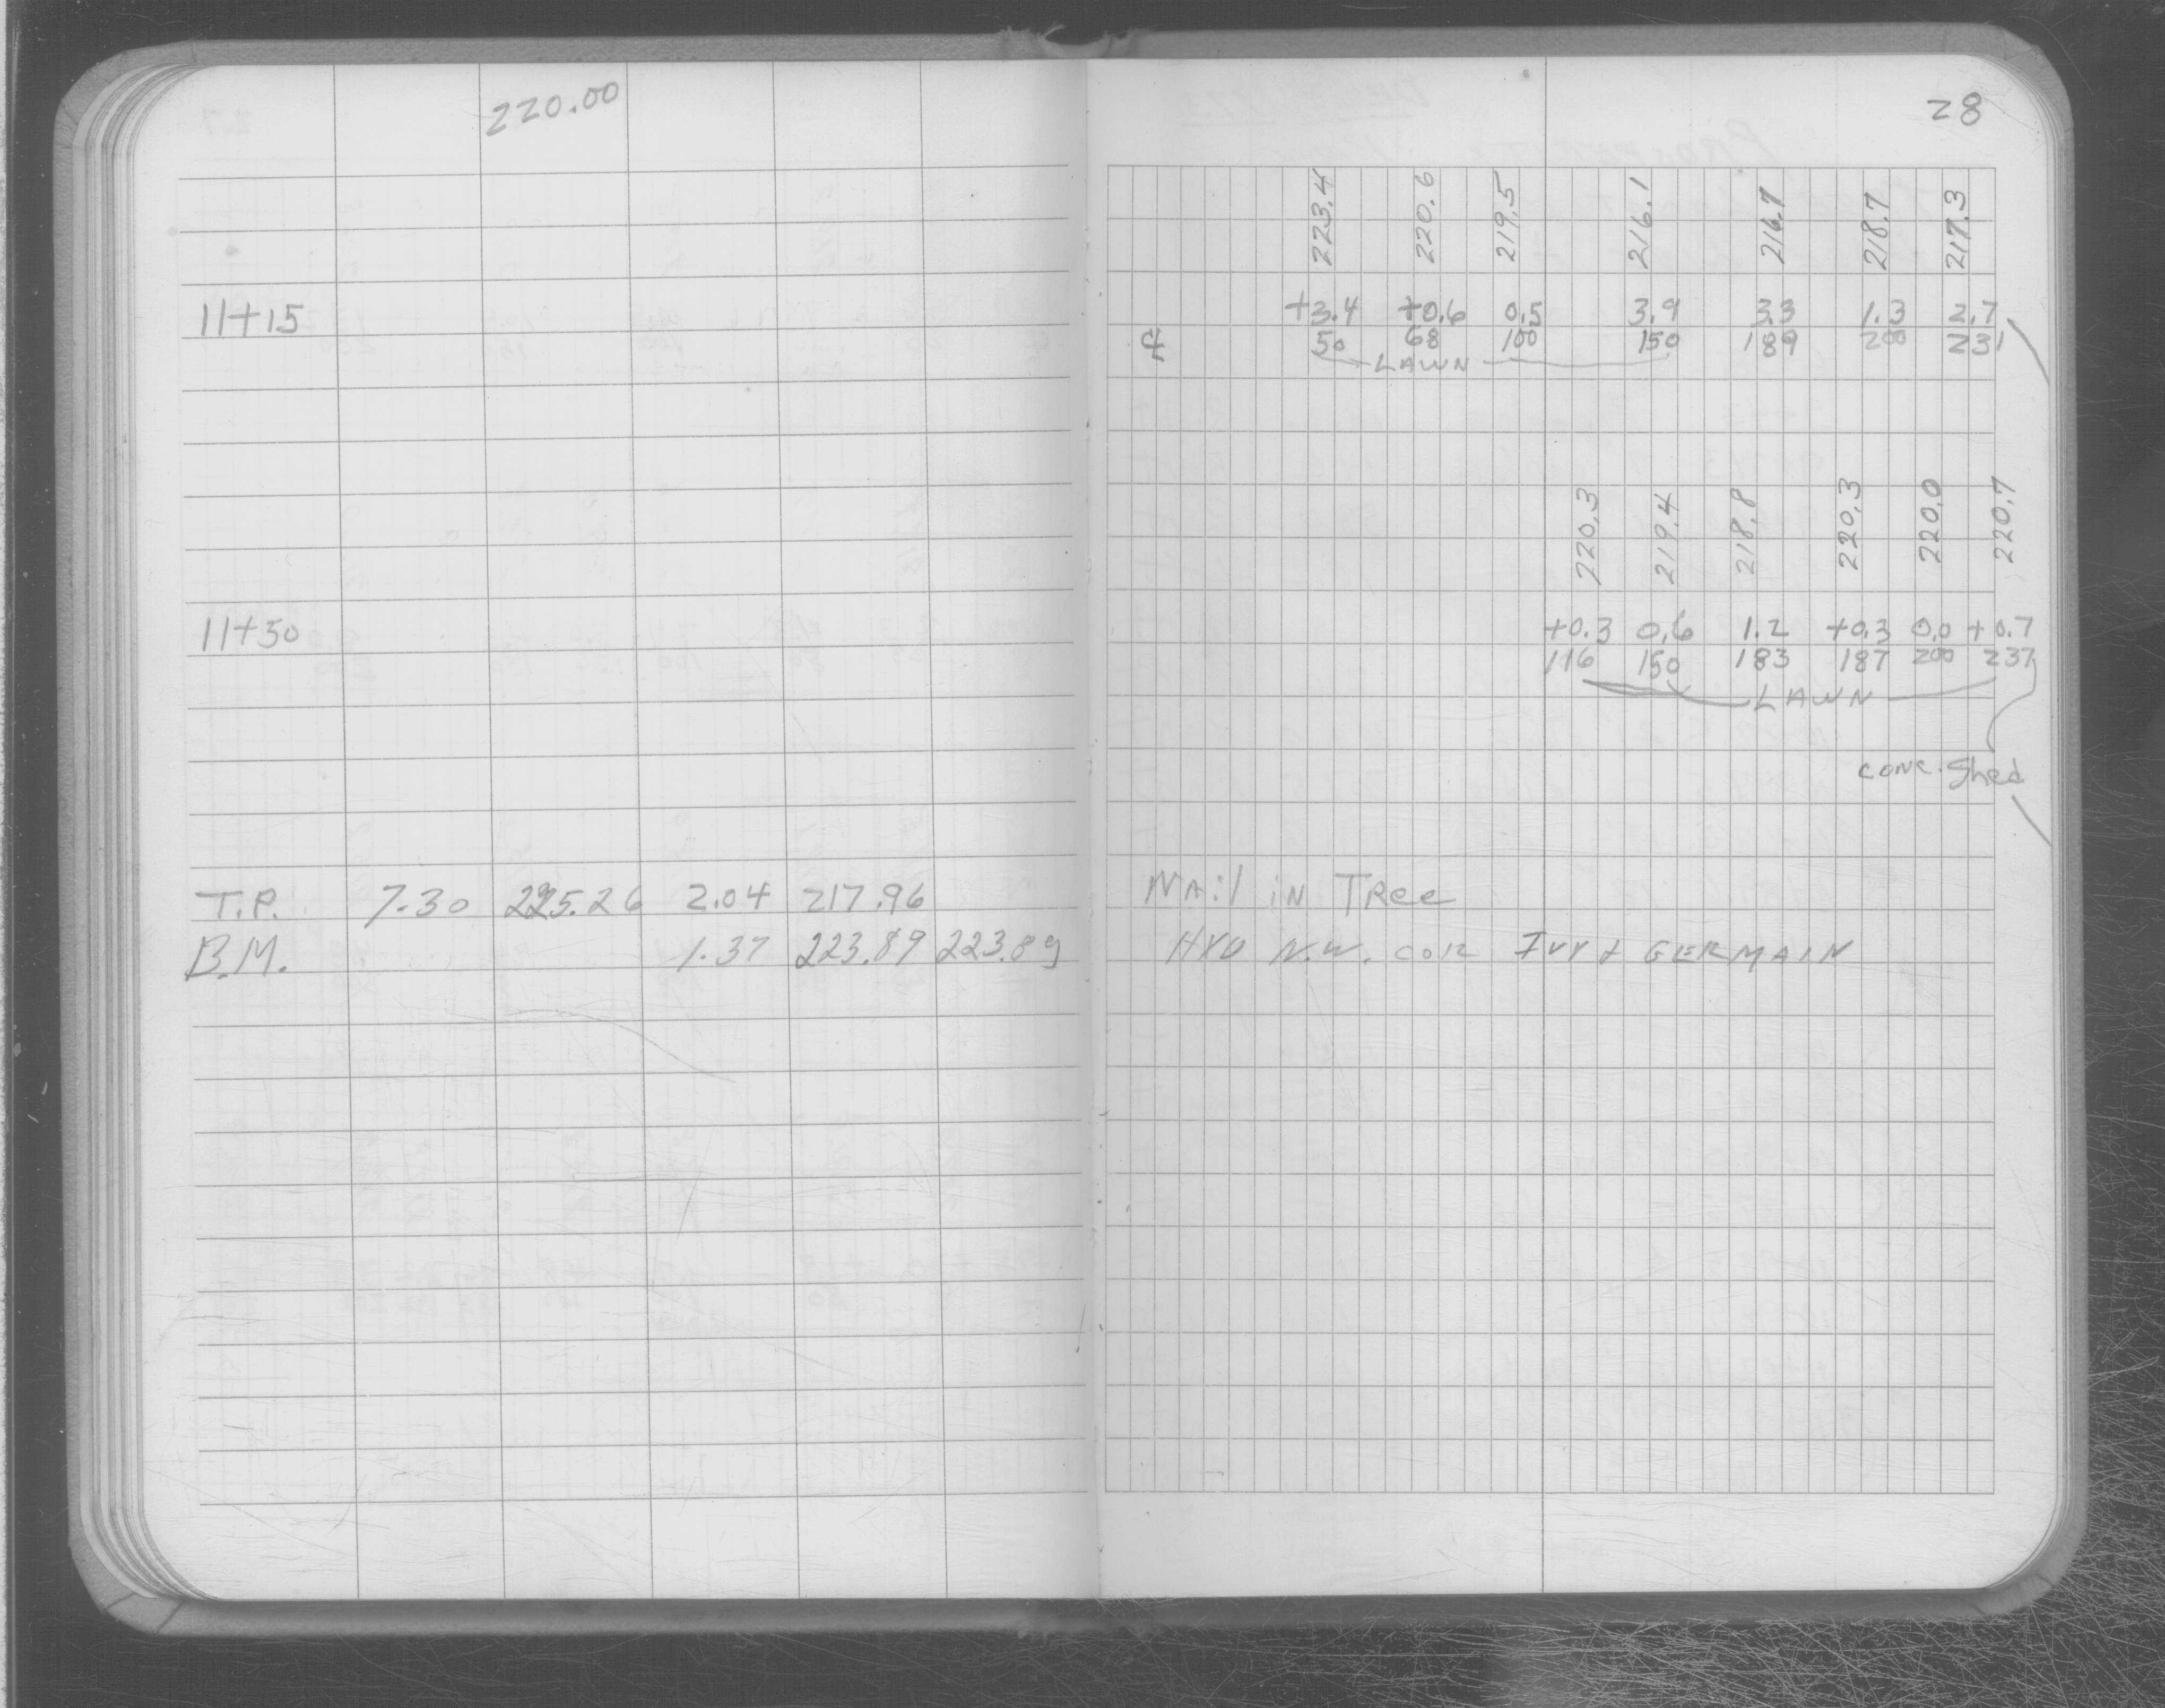 220.00
11+15
11+50
T.P. 7.30 225.26 2.04 217.96
B.M. 1.37 223.89 223.89
28
223.4 220.6 219.5 216.1 216.7 218.7 217.3
+3.4 +0.6 0.5 3.9 3.3 1.3 2.7
℄ 50 68 100 150 189 200 231
LAWN
220.3 219.4 218.8 220.3 220.0 220.7
+0.3 0.6 1.2 +0.3 0.0 +0.7
116 150 183 187 200 237
LAWN
conc. Shed
Nail in Tree
HYD N.W. COR IVY & GERMAIN